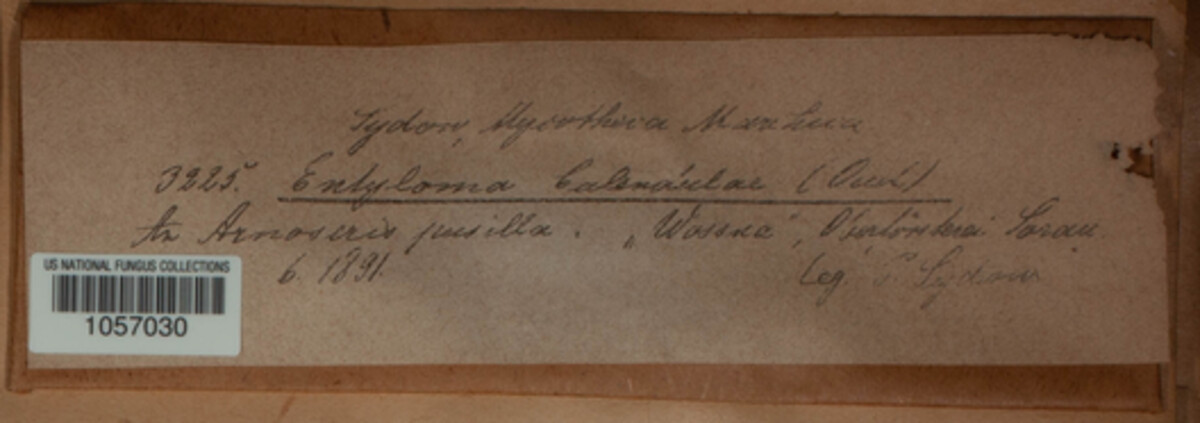 Sydow, Mycotheca Marchica
3225. Entyloma Calendulae (Oud.)
An Arnoseris pusilla. „Wossna", Oberförsterei Sorau.
6. 1891. Leg. P. Sydow
US NATIONAL FUNGUS COLLECTIONS
1057030